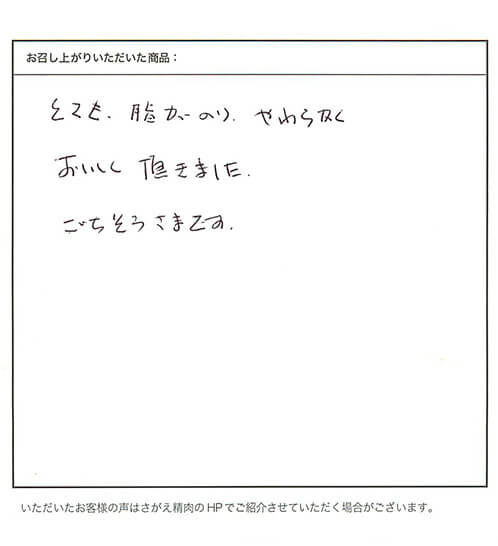 お召し上がりいただいた商品：
とても、脂がのり、やわらかく
おいしく 頂きました。
ごちそうさまです。
いただいたお客様の声はさがえ精肉のHPでご紹介させていただく場合がございます。